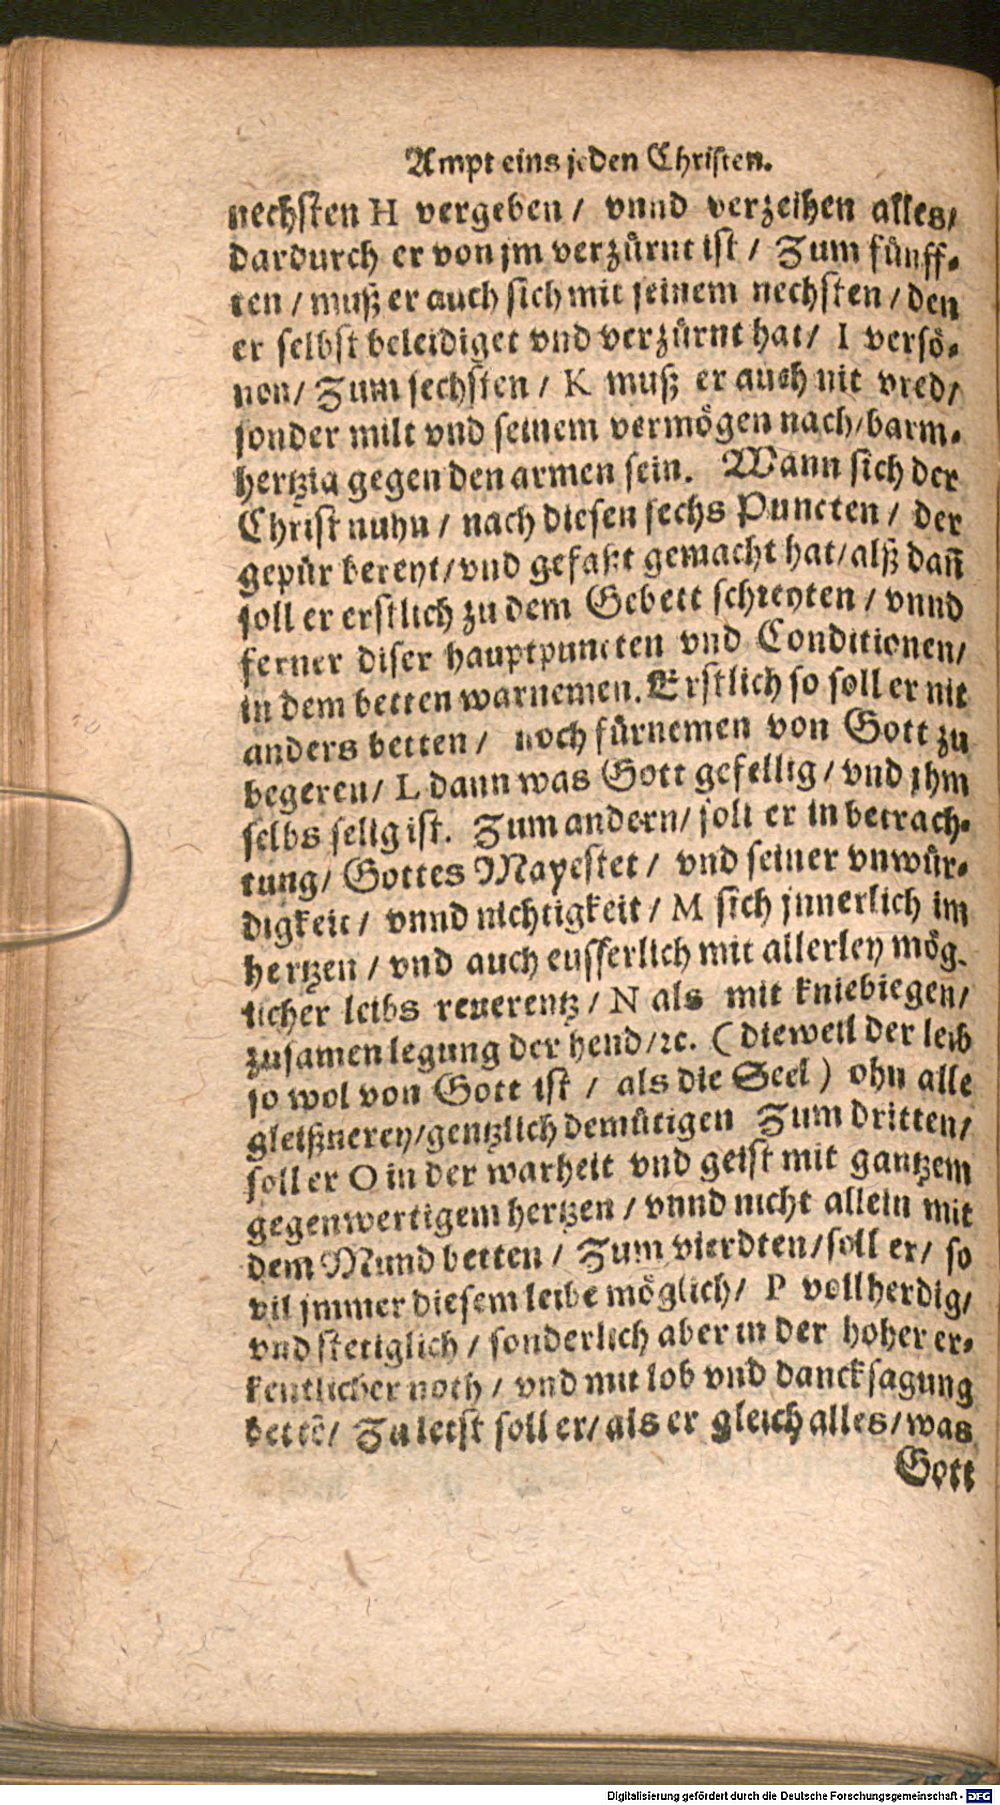 Ampt eins jeden Christen.
nechsten H vergeben / vnnd verzeihen alles/
dardurch er von jm verzürnt ist / Zum fünff-
ten / muß er auch sich mit seinem nechsten / den
er selbst beleidiget vnd verzürnt hat / I versö-
nen/ Zum sechsten / K muß er auch nit vred/
sonder milt vnd seinem vermögen nach/barm-
hertzig gegen den armen sein. Wann sich der
Christ nuhn / nach diesen sechs Puncten / der
gepür bereyt/vnd gefaßt gemacht hat/alß dañ
soll er erstlich zu dem Gebett schreyten / vnnd
ferner diser hauptpuncten vnd Conditionen/
in dem betten warnemen. Erstlich so soll er nit
anders betten / noch fürnemen von Gott zu
begeren/ L dann was Gott gefellig / vnd jhm
selbs selig ist. Zum andern/ soll er in betrach-
tung/ Gottes Mayestet / vnd seiner vnwür-
digkeit / vnnd nichtigkeit / M sich jnnerlich im
hertzen / vnd auch eusserlich mit allerley mög-
licher leibs reuerentz / N als mit kniebiegen/
zusamen legung der hend/ꝛc. ( dieweil der leib
so wol von Gott ist / als die Seel ) ohn alle
gleißnerey/gentzlich demütigen Zum dritten/
soll er O in der warheit vnd geist mit gantzem
gegenwertigem hertzen / vnnd nicht allein mit
dem Mund betten / Zum vierdten/soll er/ so
vil jmmer diesem leibe möglich/ P vollherdig/
vnd stetiglich / sonderlich aber in der hoher er-
kentlicher noth / vnd mit lob vnd dancksagung
bettẽ/ Zu letst soll er/ als er gleich alles/was
Gott
Digitalisierung gefördert durch die Deutsche Forschungsgemeinschaft - DFG